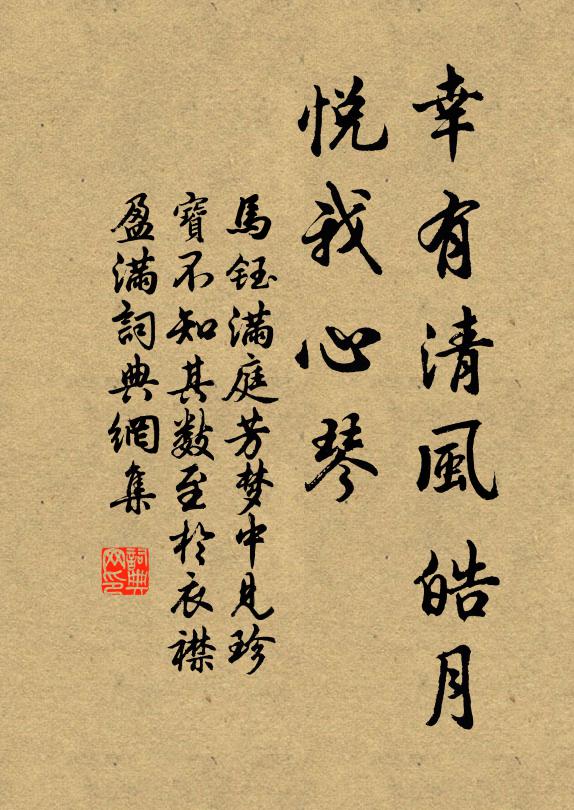 幸有清風皓月
悅我心琴
馬鈺滿庭芳梦中見珍
寶不知其數至於衣襟
盈滿詞典網集
詞典网印